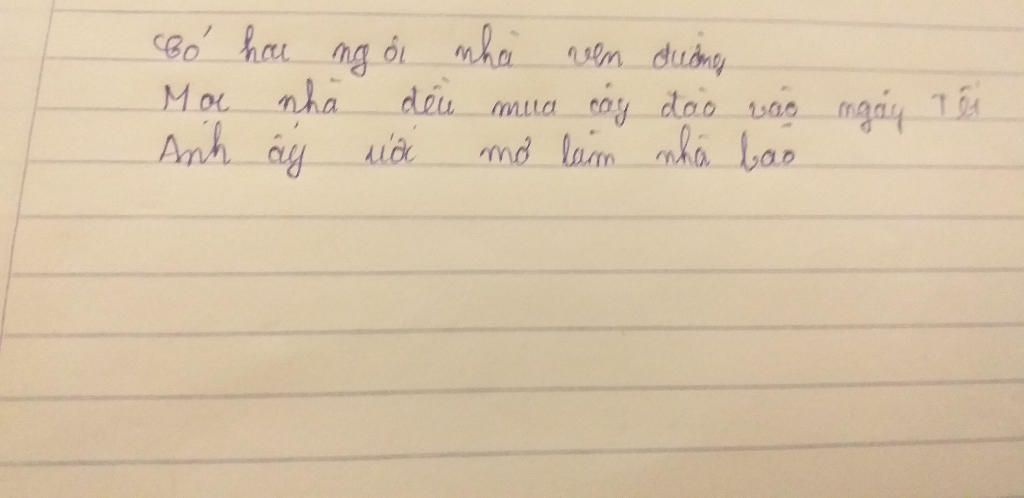 Có hai ngôi nhà ven đường
Mọi nhà đều mua cây đào vào ngày Tết
Anh ấy ước mơ làm nhà báo